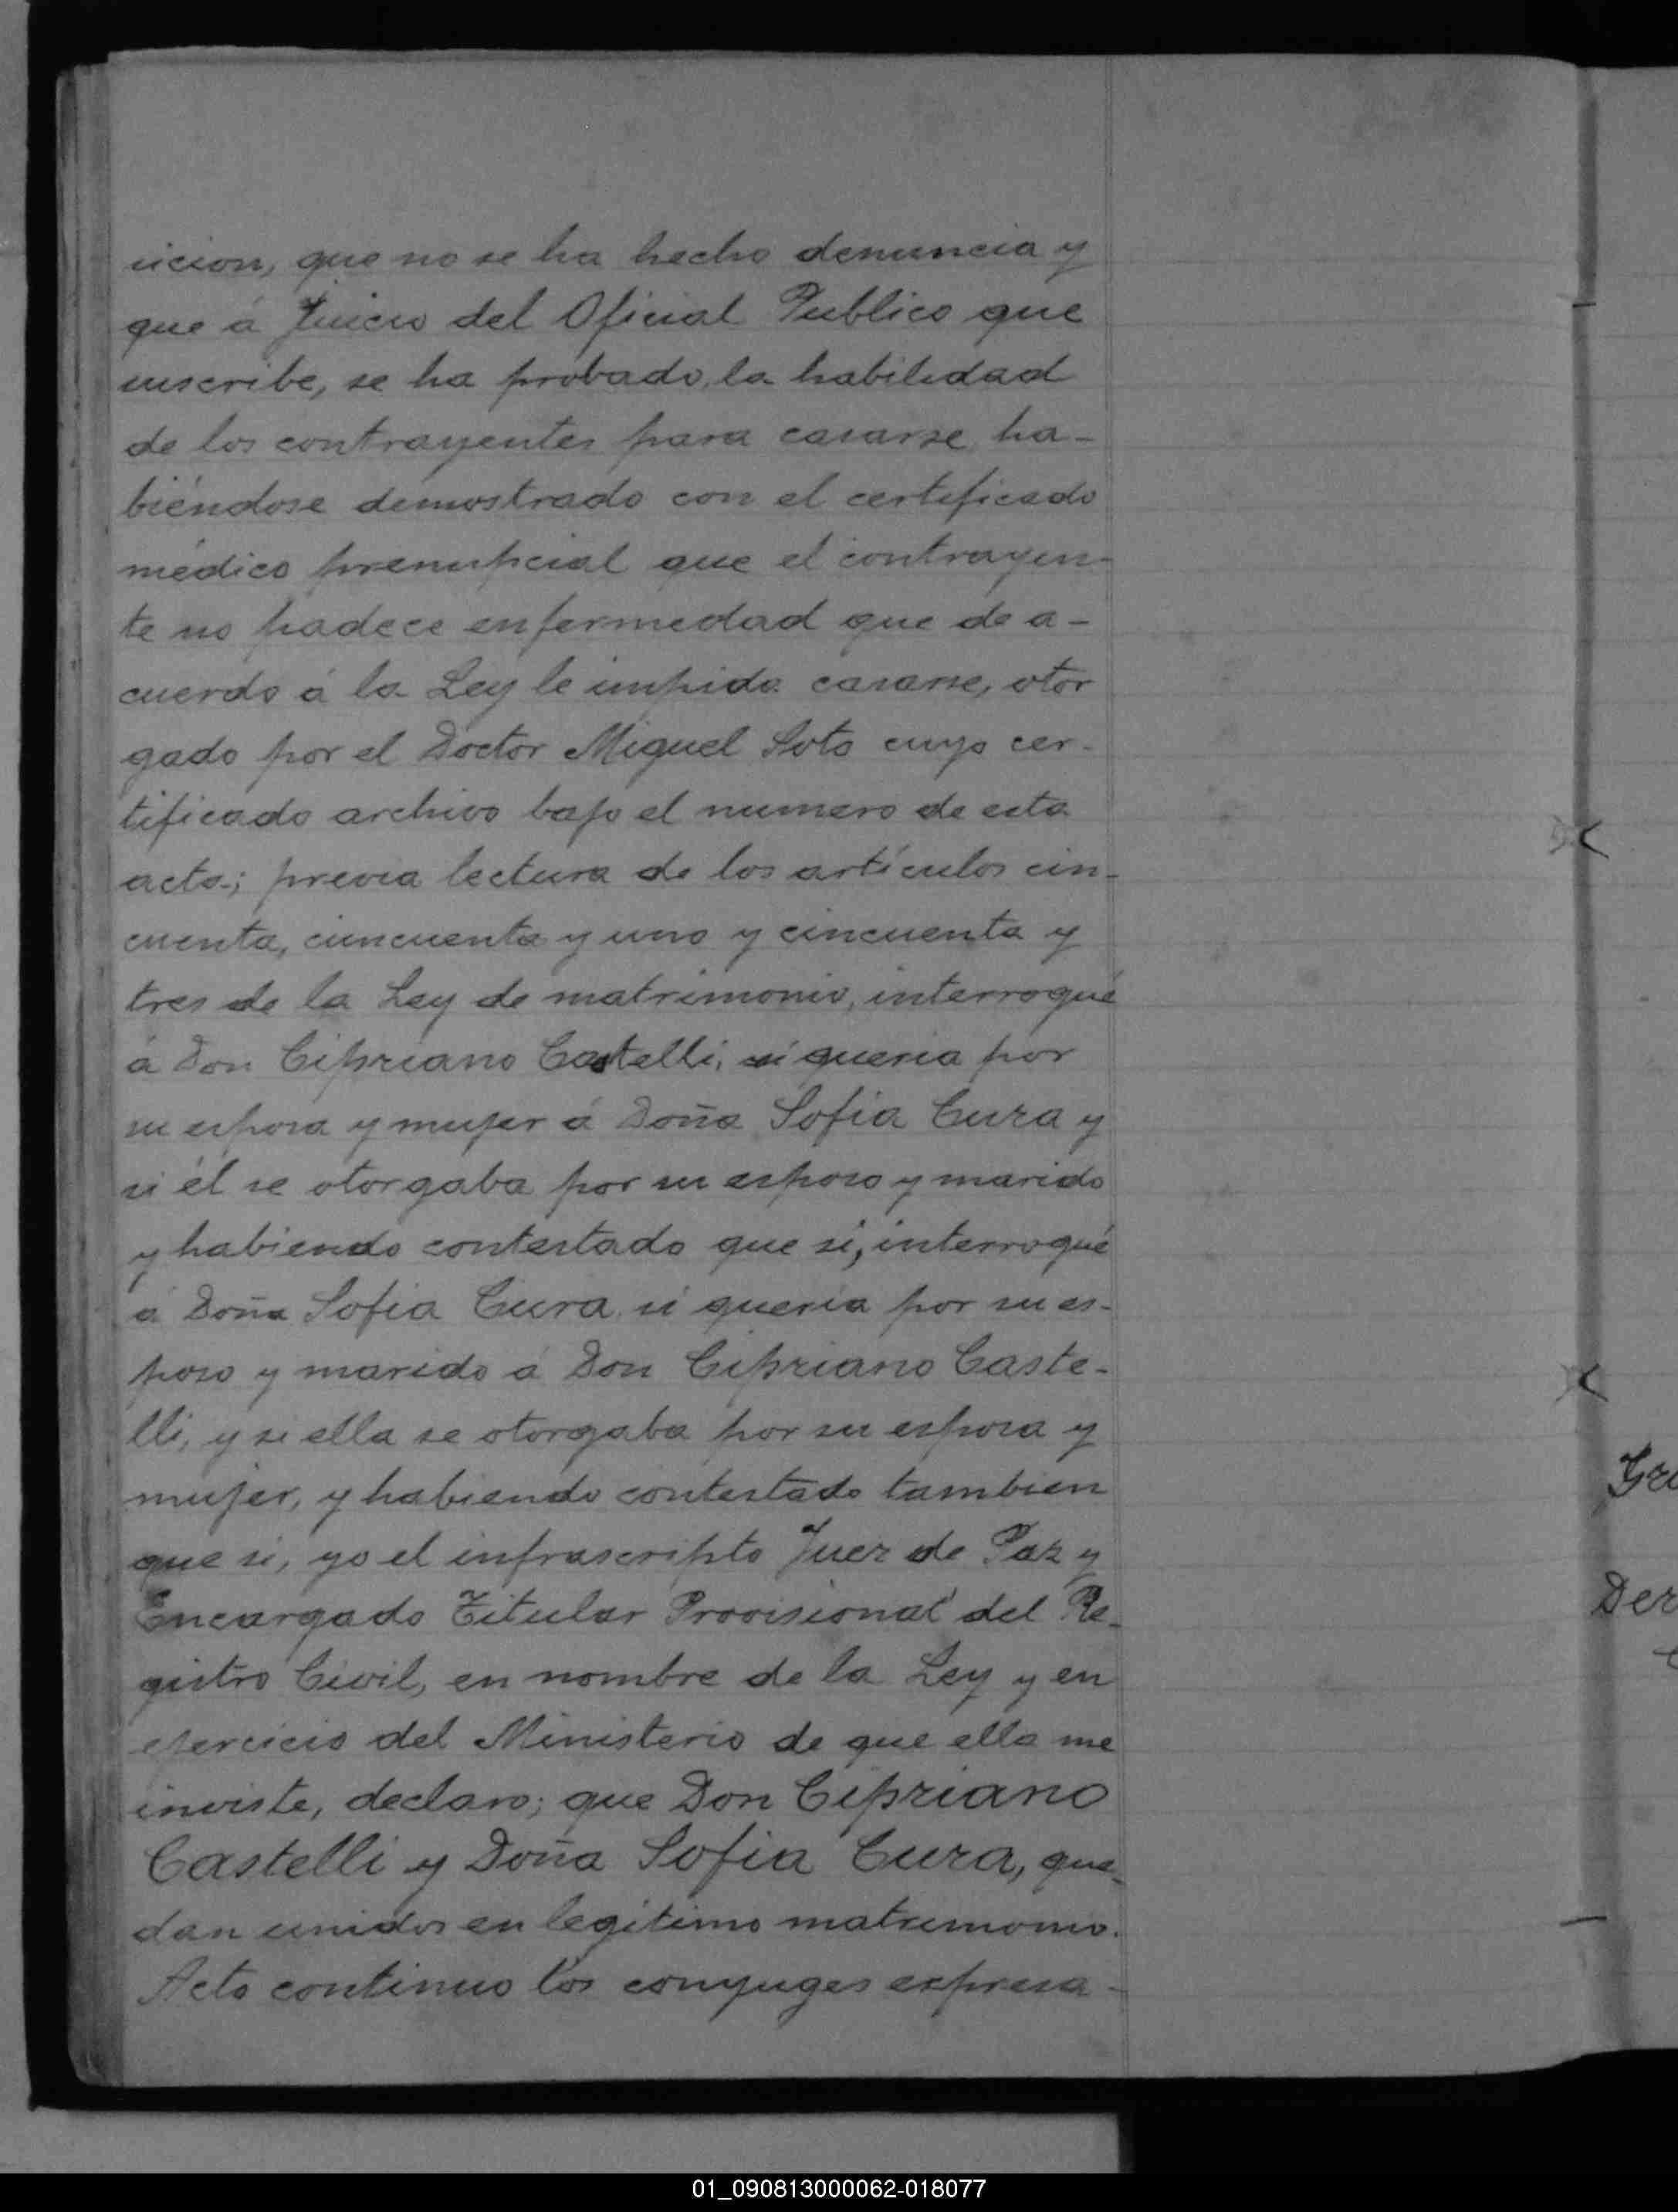 sicion, que no se ha hecho denuncia y
que á Juicio del Oficial Publico que
suscribe, se ha probado, la habilidad
de los contrayentes para casarse, ha-
biéndose demostrado con el certificado
médico prenupcial que el contrayen-
te no padece enfermedad que de a-
cuerdo á la Ley le impida casarse, otor
gado por el Doctor Miguel Soto cuyo cer-
tificado archivo bajo el numero de esta
acta; previa lectura de los artículos cin-
cuenta, cincuenta y uno y cincuenta y
tres de la Ley de matrimonio, interrogué
á Don Cipriano Castelli, si queria por
su esposa y mujer á Doña Sofia Cura y
si él se otorgaba por su esposo y marido
y habiendo contestado que si, interrogué
á Doña Sofia Cura si queria por su es-
poso y marido á Don Cipriano Caste-
lli, y si ella se otorgaba por su esposa y
mujer, y habiendo contestado tambien
que si, yo el infrascripto Juez de Paz y
Encargado Titular Provisional del Re-
gistro Civil, en nombre de la Ley y en
ejercicio del Ministerio de que ella me
inviste, declaro; que Don Cipriano
Castelli y Doña Sofia Cura, que-
dan unidos en legítimo matrimonio.
Acto continuo los conyuges expresa-
01_090813000062-018077